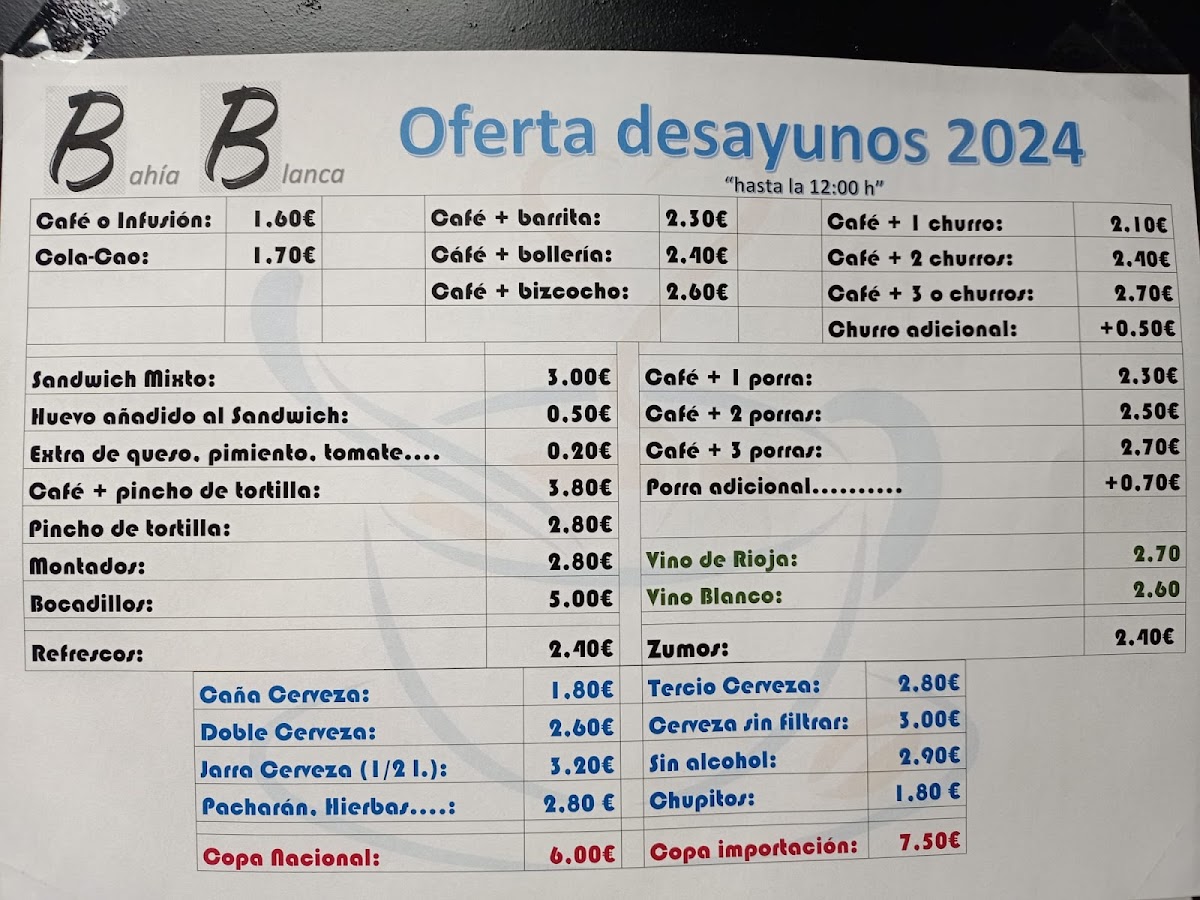 Bahía Blanca
Oferta desayunos 2024
"hasta la 12:00 h"
Café o Infusión: 1.60€
Cola-Cao: 1.70€
Café + barrita: 2.30€
Cáfé + bollería: 2.40€
Café + bizcocho: 2.60€
Café + 1 churro: 2.10€
Café + 2 churros: 2.40€
Café + 3 o churros: 2.70€
Churro adicional: +0.50€
Sandwich Mixto: 3.00€
Huevo añadido al Sandwich: 0.50€
Extra de queso, pimiento, tomate.... 0.20€
Café + pincho de tortilla: 3.80€
Pincho de tortilla: 2.80€
Montados: 2.80€
Bocadillos: 5.00€
Refrescos: 2.40€
Café + 1 porra: 2.30€
Café + 2 porras: 2.50€
Café + 3 porras: 2.70€
Porra adicional.......... +0.70€
Vino de Rioja: 2.70
Vino Blanco: 2.60
Zumos: 2.40€
Caña Cerveza: 1.80€
Doble Cerveza: 2.60€
Jarra Cerveza (1/2 l.): 3.20€
Pacharán, Hierbas....: 2.80 €
Copa Nacional: 6.00€
Tercio Cerveza: 2.80€
Cerveza sin filtrar: 3.00€
Sin alcohol: 2.90€
Chupitos: 1.80 €
Copa importación: 7.50€